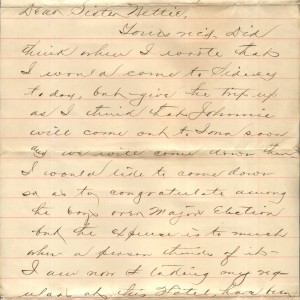 Dear Sister Nettie,
Yours rec'd. Did
think when I wrote that
I would come to Sidney
to day, but give the trip up
as I think that Johnnie
will come out to Iona soon
and we will come down then
I would like to come down
so as to congratulate among
the boys over Major Election
but the expense is to much
when a person thinks of its
I am now taking my reg-
ular at this Hotel, has been